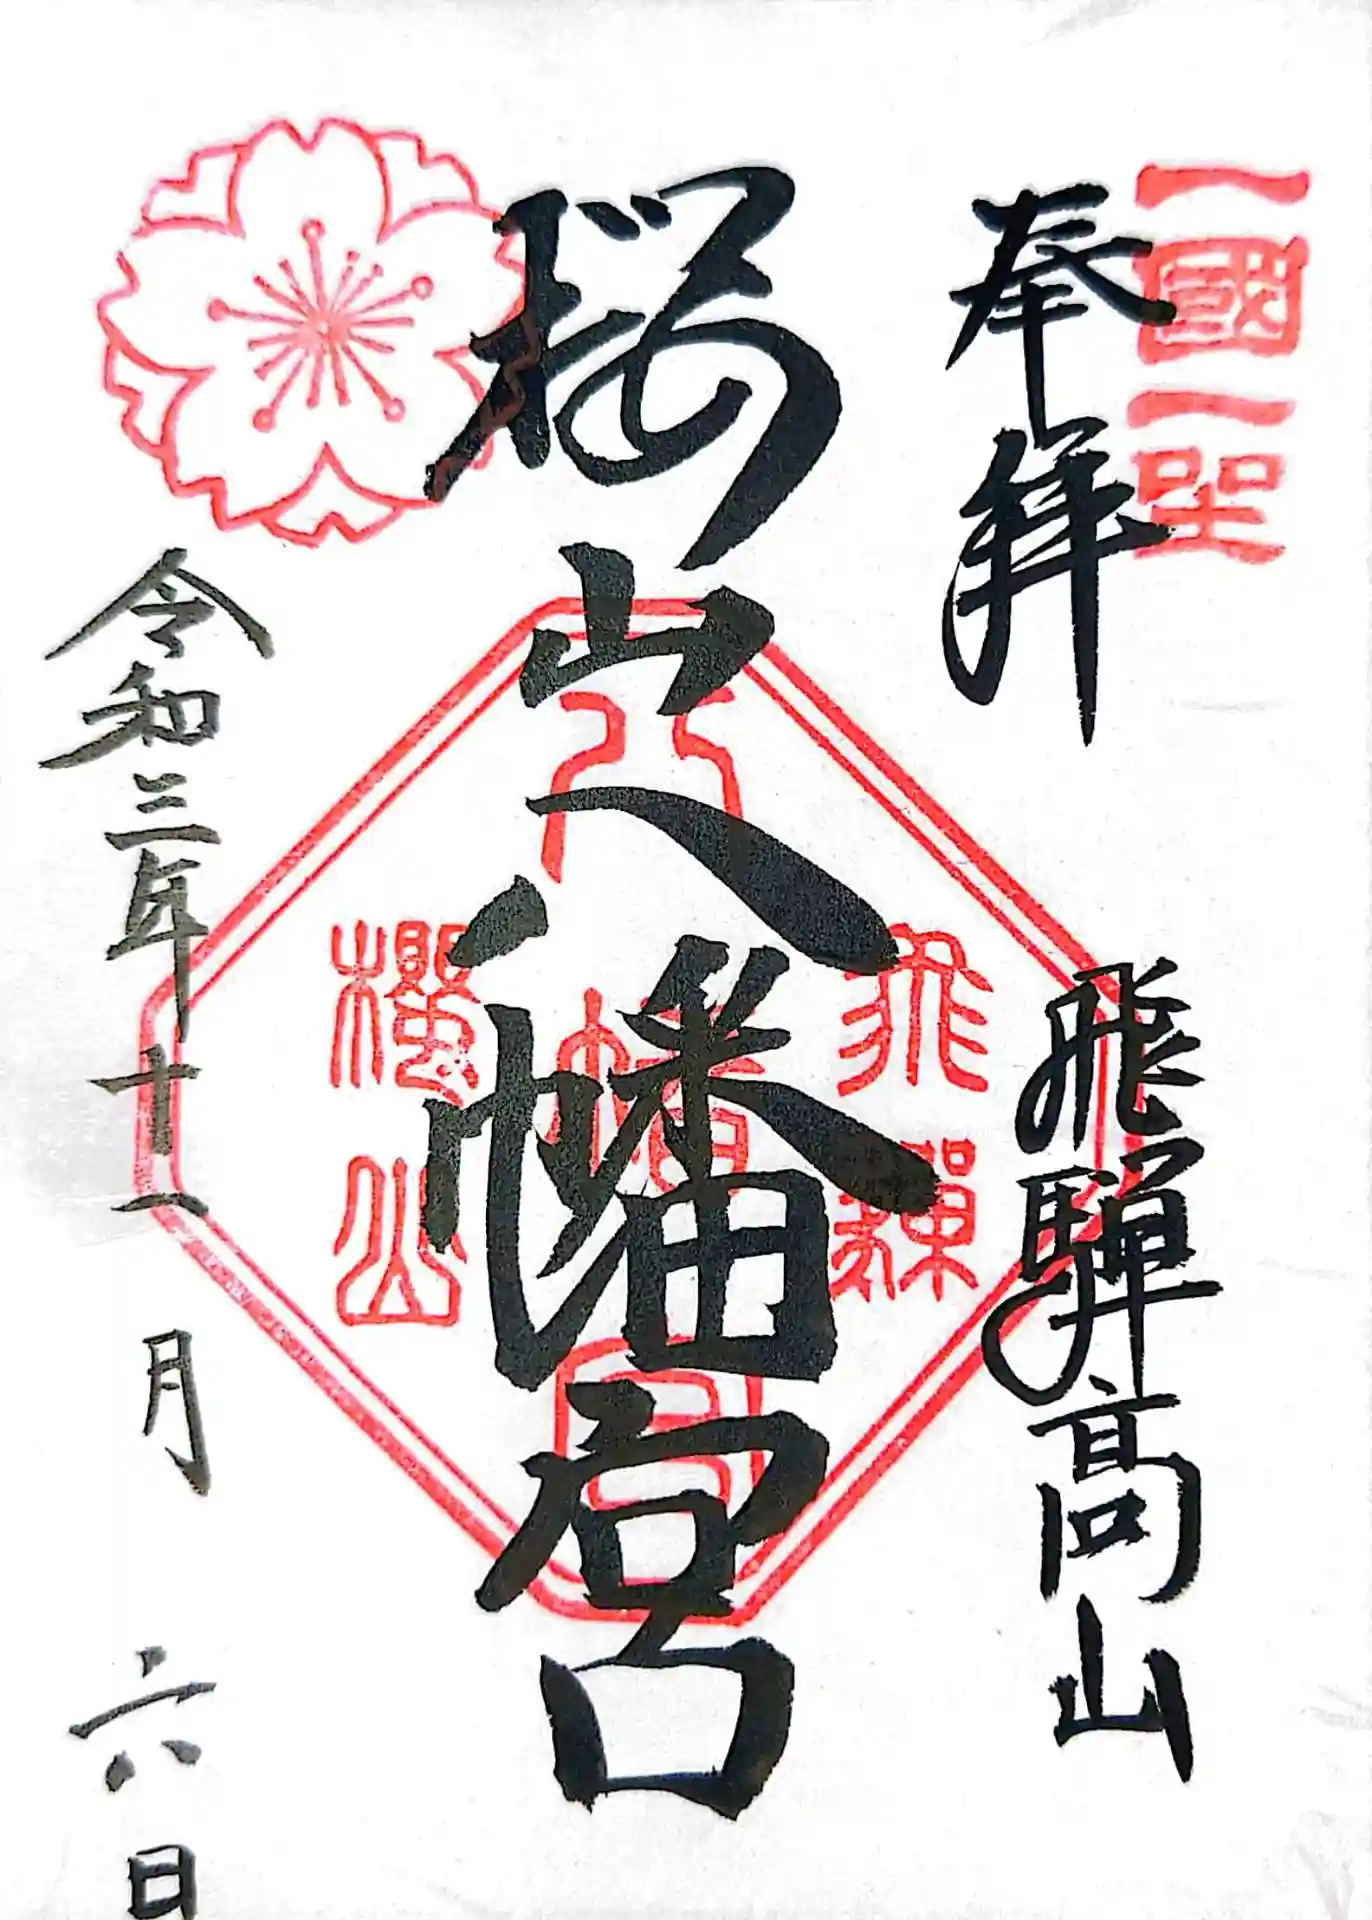 一國一聖
奉拝
飛騨高山
桜山八幡宮
飛騨
八幡宮
櫻山
令和三年十一月六日